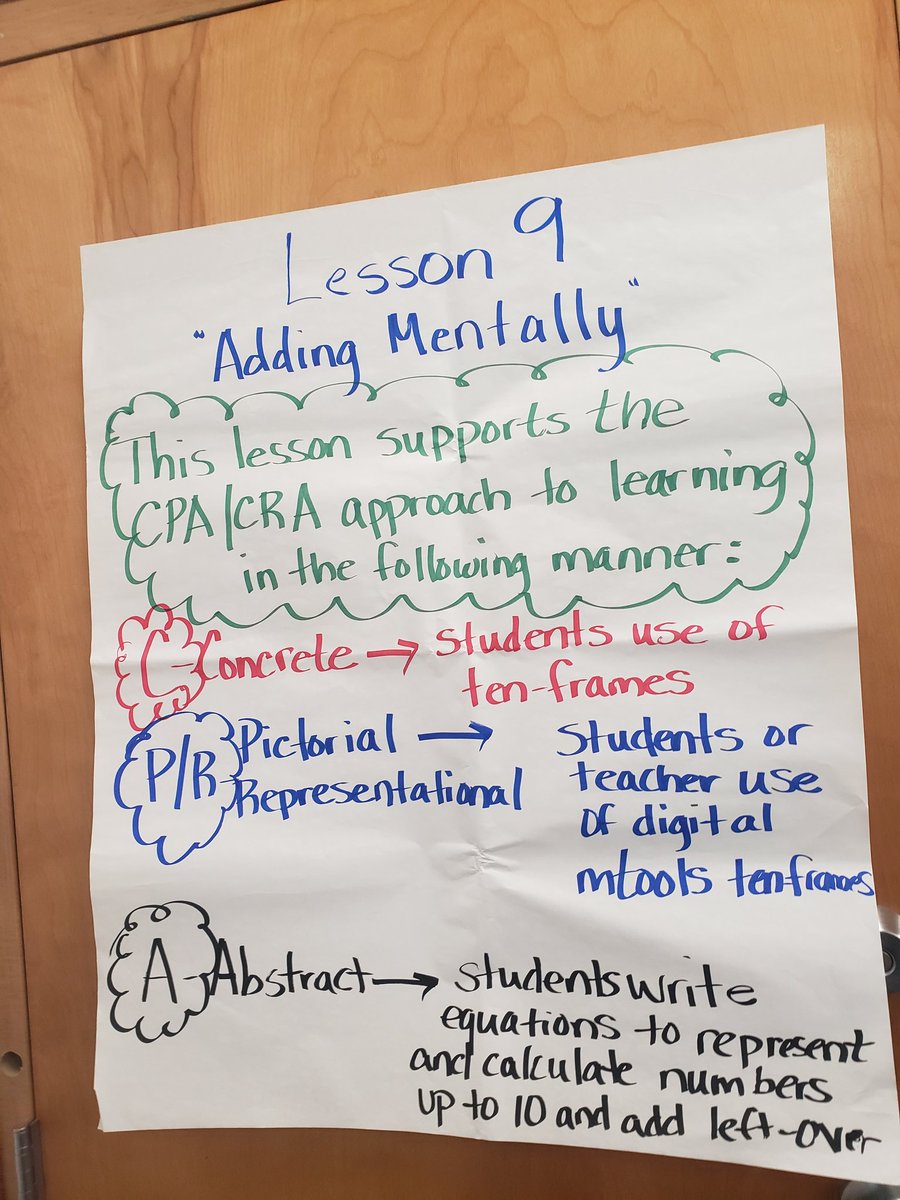 Lesson 9
"Adding Mentally"
This lesson supports the
CPA/CRA approach to learning
in the following manner:
C-Concrete → Students use of
ten-frames
P/R Pictorial → Students or
Representational teacher use
of digital
mtools tenframes
A-Abstract → Students write
equations to represent
and calculate numbers
up to 10 and add left-over